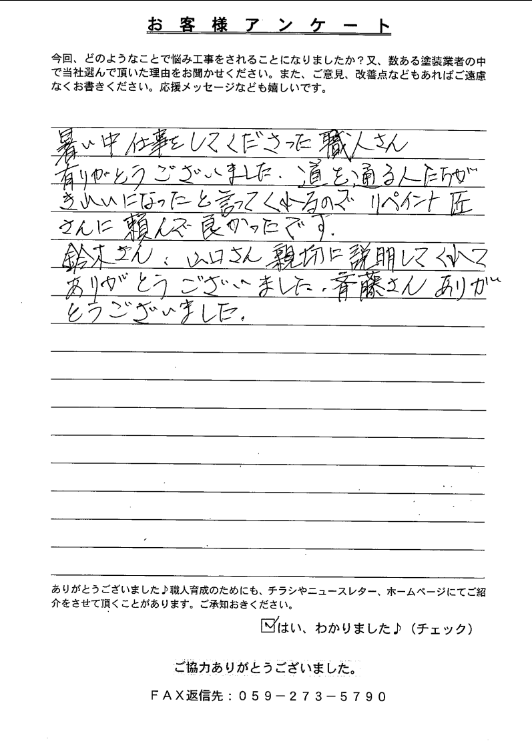 お客様アンケート
今回、どのようなことで悩み工事をされることになりましたか？又、数ある塗装業者の中
で当社選んで頂いた理由をお聞かせください。また、ご意見、改善点などもあればご遠慮
なくお書きください。応援メッセージなども嬉しいです。
暑い中仕事をしてくださった職人さん
有りがとうございました．道を通る人たちが
きれいになったと言ってくれるので リペイント匠
さんに頼んで良かったです．
鈴木さん、山口さん親切に説明してくれて
ありがとうございました．斉藤さん ありが
とうございました．
ありがとうございました♪職人育成のためにも、チラシやニュースレター、ホームページにてご紹
介をさせて頂くことがあります。ご承知おきください。
☑はい、わかりました♪（チェック）
ご協力ありがとうございました。
ＦＡＸ返信先：０５９－２７３－５７９０